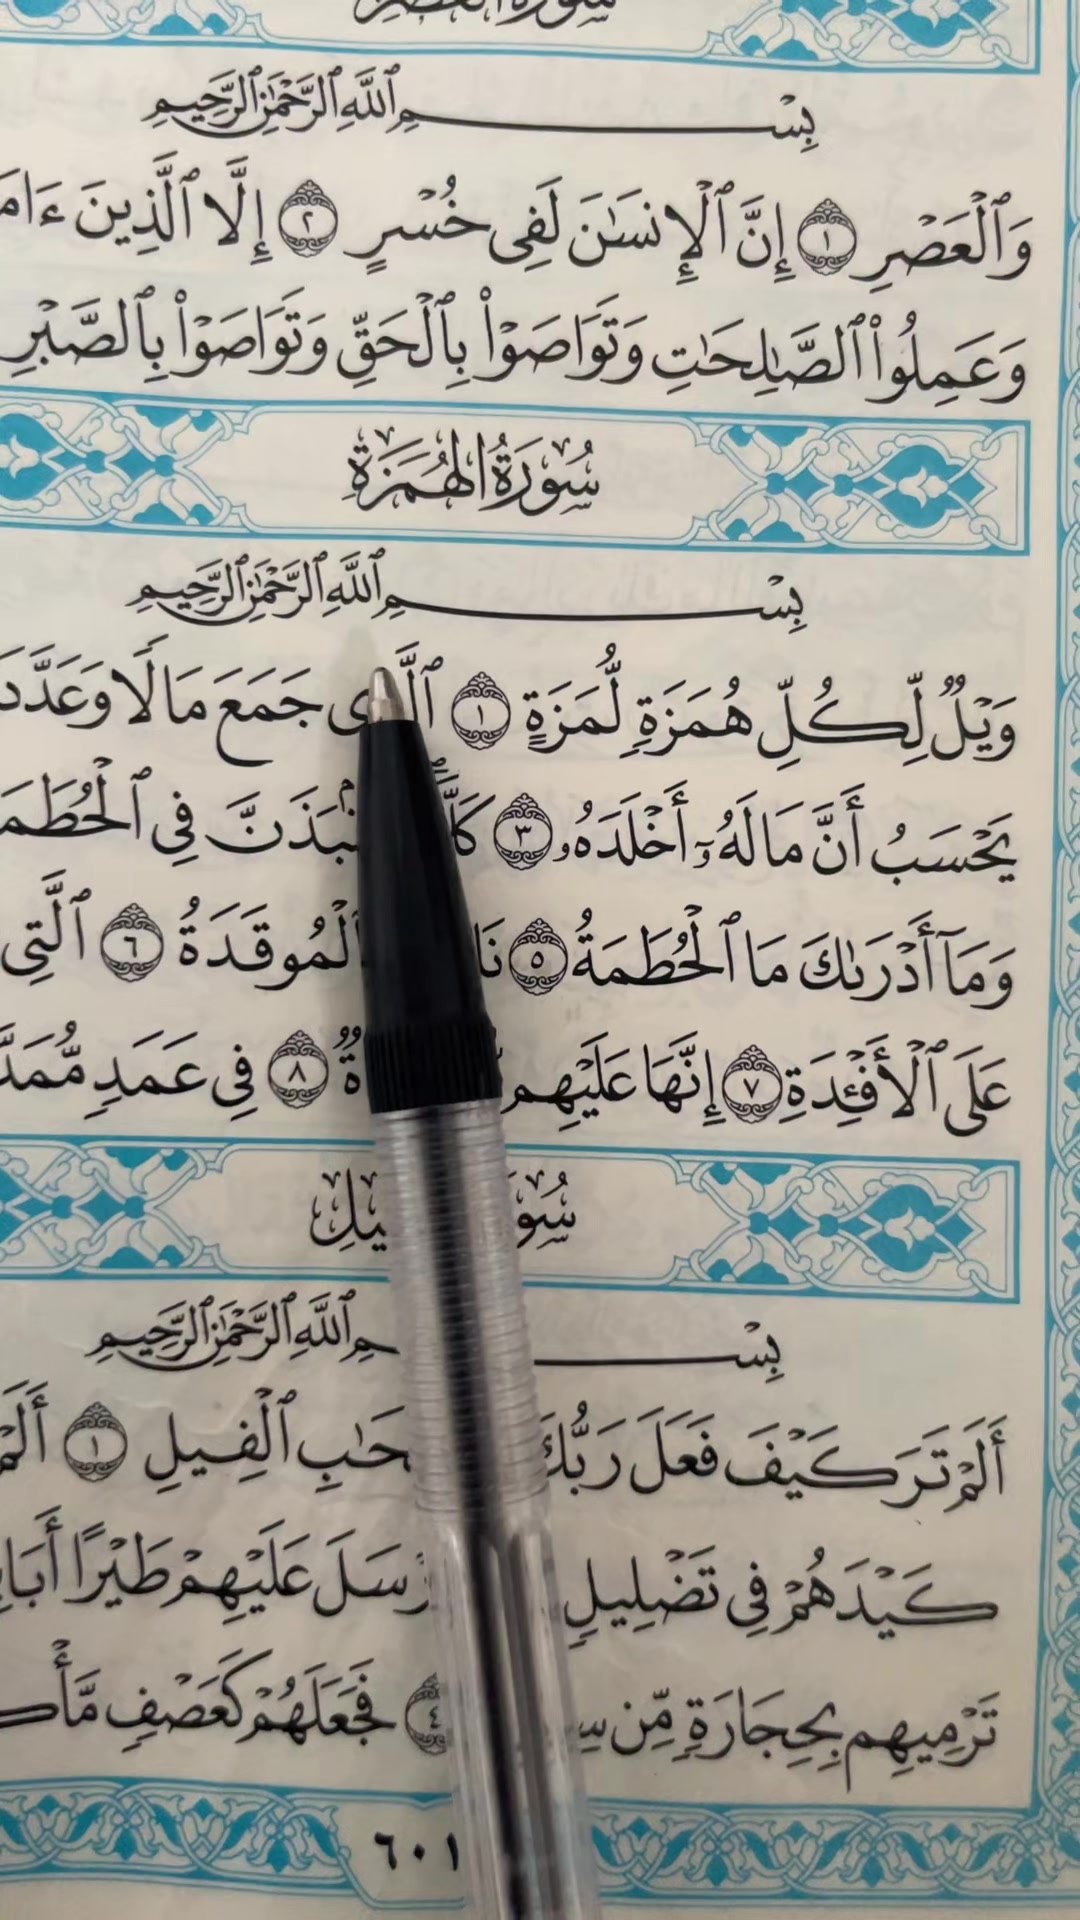 سُورَةُ العَصْرِ
بِسْمِ ٱللَّهِ ٱلرَّحْمَٰنِ ٱلرَّحِيمِ
وَٱلْعَصْرِ ١ إِنَّ ٱلْإِنسَٰنَ لَفِى خُسْرٍ ٢ إِلَّا ٱلَّذِينَ
وَعَمِلُوا۟ ٱلصَّٰلِحَٰتِ وَتَوَاصَوْا۟ بِٱلْحَقِّ وَتَوَاصَوْا۟ بِٱلصَّبْرِ
سُورَةُ الهُمَزَةِ
بِسْمِ ٱللَّهِ ٱلرَّحْمَٰنِ ٱلرَّحِيمِ
وَيْلٌ لِّكُلِّ هُمَزَةٍ لُّمَزَةٍ ١ ٱلَّذِى جَمَعَ مَالًا
يَحْسَبُ أَنَّ مَالَهُۥٓ أَخْلَدَهُۥ ٣ فِى
وَمَآ أَدْرَىٰكَ مَا ٱلْحُطَمَةُ ٥ ٱلْمُوقَدَةُ ٦ ٱلَّتِى
عَلَى ٱلْأَفْـِٔدَةِ ٧ إِنَّهَا عَلَيْهِم ٨ فِى عَمَدٍ
بِسْمِ ٱللَّهِ ٱلرَّحْمَٰنِ ٱلرَّحِيمِ
أَلَمْ تَرَ كَيْفَ فَعَلَ رَبُّكَ ٱلْفِيلِ ١
كَيْدَهُمْ فِى تَضْلِيلٍ عَلَيْهِمْ طَيْرًا
تَرْمِيهِم بِحِجَارَةٍ مِّن ٤ فَجَعَلَهُمْ كَعَصْفٍ
٦٠١